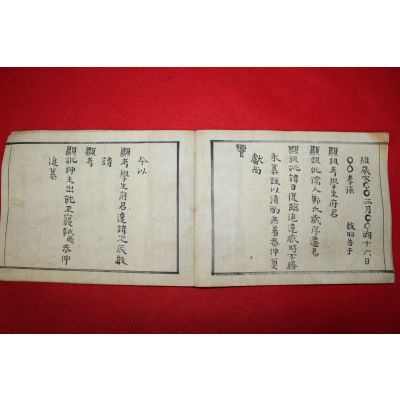 維歲次〇〇三月〇〇朔十六日
〇〇孝孫 敢昭告于
顯祖考學生府君
顯祖妣孺人鄭氏歲序遷易
顯祖妣諱日復臨追遠感時不勝
永慕謹以清酌庶羞恭伸奠
獻尙
饗
今以
顯考學生府君遠諱之辰敢
請
顯考
顯妣神主出就正寢恭伸
追慕